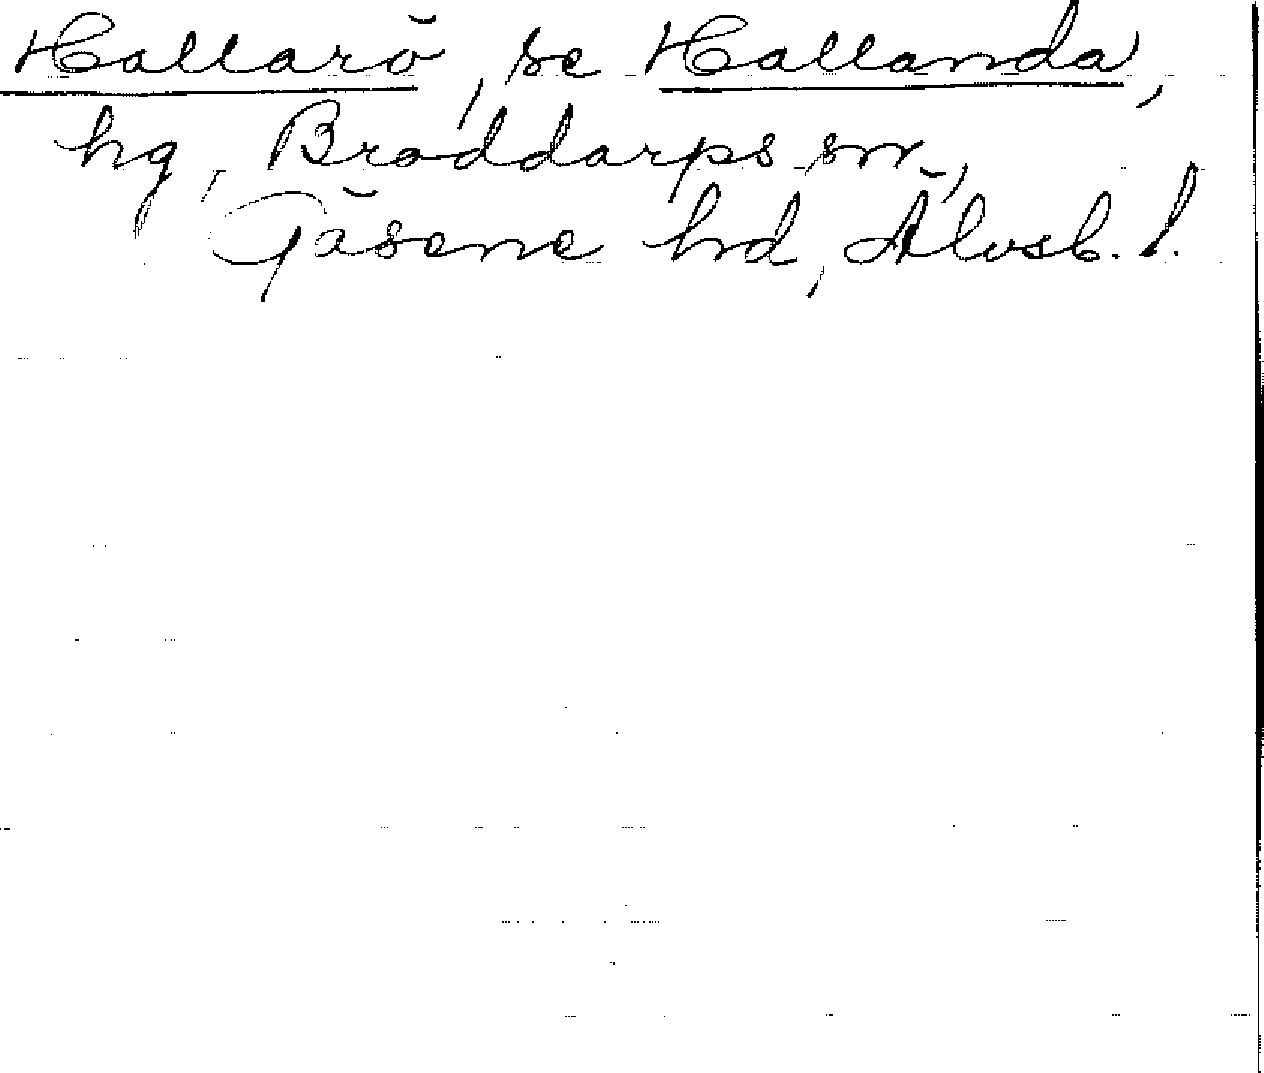 Hallarö, se Hallanda,
hg, Broddarps sn,
Gäsene hd, Älvsb. l.